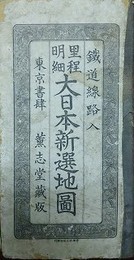 鐵道線路入
里程明細大日本新選地圖
東京書肆 薫志堂藏版